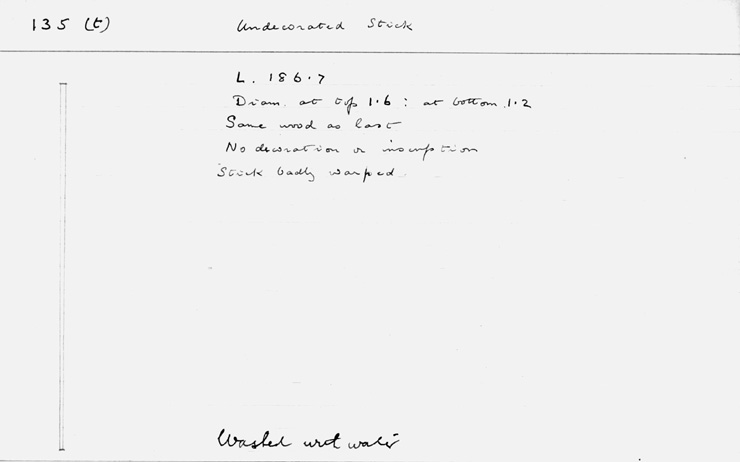 135 (t)
Undecorated Stick
L. 186.7
Diam. at top 1.6 : at bottom 1.2
Same wood as last
No decoration or inscription
Stick badly warped
Washed wot water